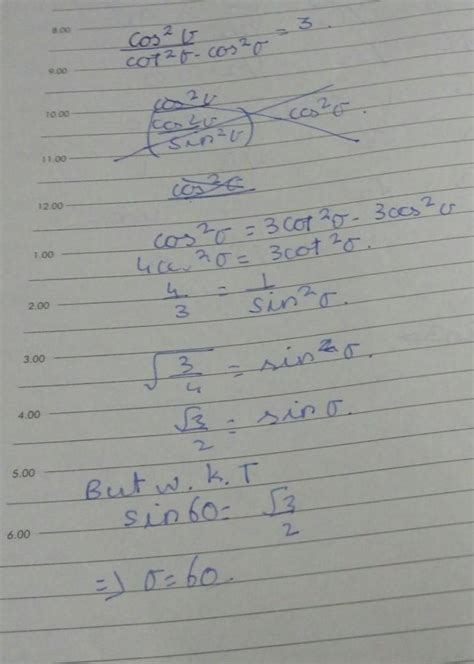 8.00
cos²σ / cot²σ - cos²σ = 3.
9.00
10.00
cos²σ / (cos²σ / sin²σ) - cos²σ.
11.00
cos²σ
12.00
cos²σ = 3cot²σ - 3cos²σ
1.00
4cos²σ = 3cot²σ.
4/3 = 1/sin²σ.
2.00
3.00
√(3/4) = sin²σ.
4.00
√3/2 = sinσ.
5.00
But w.K.T
sin60 = √3/2
6.00
=> σ=60.